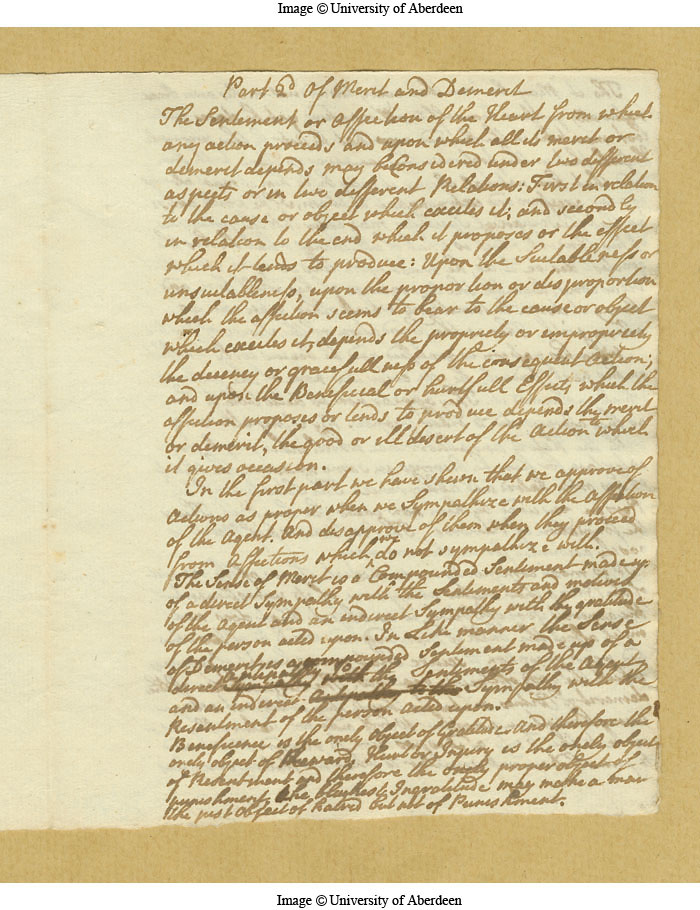 Image © University of Aberdeen
Part 2d Of Merit and Demerit
The Sentement or affection of the Heart from which
any action proceeds and upon which all its merit or
demerit depends may be Considered under two different
aspects or in two different Relations: First in relation
to the cause or object which excites it; and secondly
in relation to the end which it proposes or the effect
which it tends to produce: Upon the Suitableness or
unsuitableness, upon the proportion or disproportion
which the affection seems to bear to the cause or object
which excites it, depends the propriety or impropriety
the decency or gracefullness of the consequent action;
and upon the Beneficial or hurtfull Effects which the
affection proposes or tends to produce depends the merit
or demerit, the good or ill desert of the Action to which
it gives occasion.
In the first part we have shewn that we approve of
Actions as proper when we Sympathize with the Affection
of the Agent. And disapprove of them when they proceed
from Affections which we do not sympathize with.
The Sense of Merit is a Compounded Sentiment made up
of a direct Sympathy with the Sentiments and motives
of the Agent and an indirect Sympathy with the gratitude
of the person acted upon. In Like manner the Sense
of Demerit is a compounded Sentiment made up of a
direct Antipathy to the Sentiments of the Agent
and an indirect Sympathy with the
Resentment of the person acted upon.
Beneficence is the onely object of Gratitude and therefore the
onely object of Reward. Hurt or Injury is the onely object
of Resentment and therefore the onely proper object of
punishment, the blackest Ingratitude may make a man
the just object of hatred but not of Punishment.
Image © University of Aberdeen